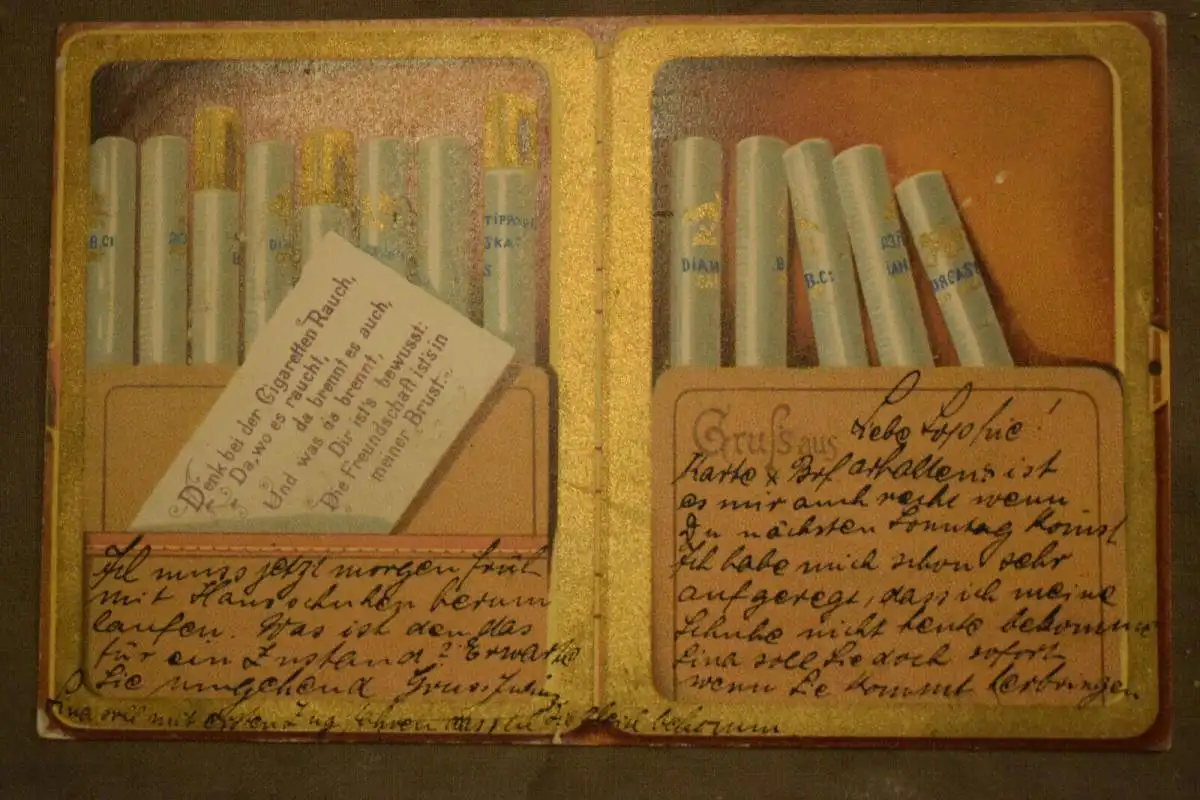 B.C:
DIAN
TIPPO
SKAS
S
DIAN
B
B.C:
IAN
ORCAS
Denk bei der Cigaretten Rauch,
Da, wo es raucht,
da brennt es auch,
Und was da brennt,
Dir ist's bewusst:
Die Freundschaft ist's in
meiner Brust.
Gruss aus
Liebe Sophie!
Karte & Brf erhalten, ist
es mir auch recht wenn
Du nächsten Sonntag komst
Ich habe mich schon sehr
aufgeregt, dass ich meine
Schuhe nicht heute bekomme
Lina soll Sie doch sofort
wenn Sie kommt herbringen
Ich muss jetzt morgen früh
mit Hausschuhen herum
laufen. Was ist den das
für ein Zustand? Erwarte
Sie umgehend Gruss
Lina soll mit ersten Zug fahren dass ich Sie gleich bekomm